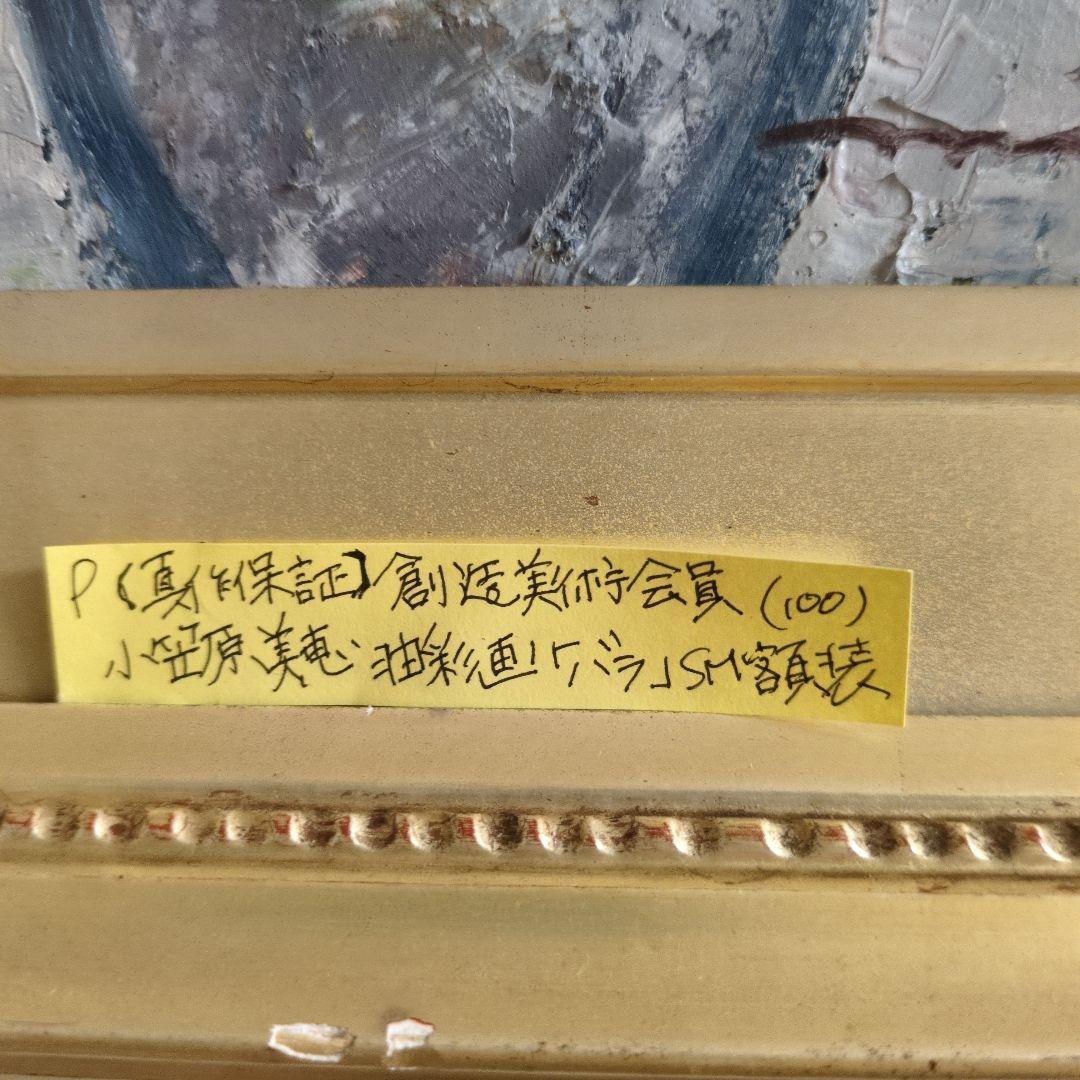 P【真作保証】創造美術会員(100)
小笠原美恵 油彩画「バラ」SM額装